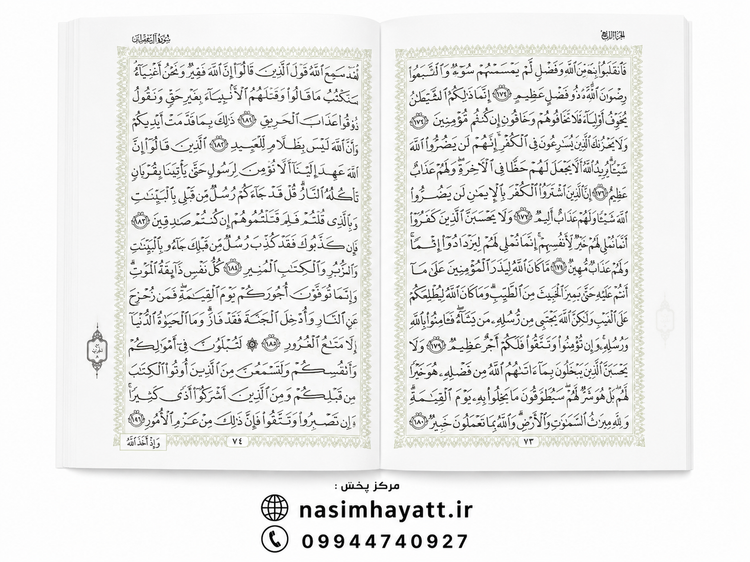 الجزء الرابع
فَٱنقَلَبُوا۟ بِنِعْمَةٍ مِّنَ ٱللَّهِ وَفَضْلٍ لَّمْ يَمْسَسْهُمْ سُوٓءٌ وَٱتَّبَعُوا۟
رِضْوَٰنَ ٱللَّهِ وَٱللَّهُ ذُو فَضْلٍ عَظِيمٍ ١٧٤ إِنَّمَا ذَٰلِكُمُ ٱلشَّيْطَٰنُ
يُخَوِّفُ أَوْلِيَآءَهُۥ فَلَا تَخَافُوهُمْ وَخَافُونِ إِن كُنتُم مُّؤْمِنِينَ ١٧٥
وَلَا يَحْزُنكَ ٱلَّذِينَ يُسَٰرِعُونَ فِى ٱلْكُفْرِ إِنَّهُمْ لَن يَضُرُّوا۟ ٱللَّهَ
شَيْـًٔا يُرِيدُ ٱللَّهُ أَلَّا يَجْعَلَ لَهُمْ حَظًّا فِى ٱلْـَٔاخِرَةِ وَلَهُمْ عَذَابٌ
عَظِيمٌ ١٧٦ إِنَّ ٱلَّذِينَ ٱشْتَرَوُا۟ ٱلْكُفْرَ بِٱلْإِيمَٰنِ لَن يَضُرُّوا۟
ٱللَّهَ شَيْـًٔا وَلَهُمْ عَذَابٌ أَلِيمٌ ١٧٧ وَلَا يَحْسَبَنَّ ٱلَّذِينَ كَفَرُوٓا۟
أَنَّمَا نُمْلِى لَهُمْ خَيْرٌ لِّأَنفُسِهِمْ إِنَّمَا نُمْلِى لَهُمْ لِيَزْدَادُوٓا۟ إِثْمًا
وَلَهُمْ عَذَابٌ مُّهِينٌ ١٧٨ مَّا كَانَ ٱللَّهُ لِيَذَرَ ٱلْمُؤْمِنِينَ عَلَىٰ مَآ
أَنتُمْ عَلَيْهِ حَتَّىٰ يَمِيزَ ٱلْخَبِيثَ مِنَ ٱلطَّيِّبِ وَمَا كَانَ ٱللَّهُ لِيُطْلِعَكُمْ
عَلَى ٱلْغَيْبِ وَلَٰكِنَّ ٱللَّهَ يَجْتَبِى مِن رُّسُلِهِۦ مَن يَشَآءُ فَـَٔامِنُوا۟ بِٱللَّهِ
وَرُسُلِهِۦ وَإِن تُؤْمِنُوا۟ وَتَتَّقُوا۟ فَلَكُمْ أَجْرٌ عَظِيمٌ ١٧٩ وَلَا
يَحْسَبَنَّ ٱلَّذِينَ يَبْخَلُونَ بِمَآ ءَاتَىٰهُمُ ٱللَّهُ مِن فَضْلِهِۦ هُوَ خَيْرًا
لَّهُم بَلْ هُوَ شَرٌّ لَّهُمْ سَيُطَوَّقُونَ مَا بَخِلُوا۟ بِهِۦ يَوْمَ ٱلْقِيَٰمَةِ
وَلِلَّهِ مِيرَٰثُ ٱلسَّمَٰوَٰتِ وَٱلْأَرْضِ وَٱللَّهُ بِمَا تَعْمَلُونَ خَبِيرٌ ١٨٠
٧٣
سورة آل عمران
لَّقَدْ سَمِعَ ٱللَّهُ قَوْلَ ٱلَّذِينَ قَالُوٓا۟ إِنَّ ٱللَّهَ فَقِيرٌ وَنَحْنُ أَغْنِيَآءُ
سَنَكْتُبُ مَا قَالُوا۟ وَقَتْلَهُمُ ٱلْأَنۢبِيَآءَ بِغَيْرِ حَقٍّ وَنَقُولُ
ذُوقُوا۟ عَذَابَ ٱلْحَرِيقِ ١٨١ ذَٰلِكَ بِمَا قَدَّمَتْ أَيْدِيكُمْ
وَأَنَّ ٱللَّهَ لَيْسَ بِظَلَّامٍ لِّلْعَبِيدِ ١٨٢ ٱلَّذِينَ قَالُوٓا۟ إِنَّ
ٱللَّهَ عَهِدَ إِلَيْنَآ أَلَّا نُؤْمِنَ لِرَسُولٍ حَتَّىٰ يَأْتِيَنَا بِقُرْبَانٍ
تَأْكُلُهُ ٱلنَّارُ قُلْ قَدْ جَآءَكُمْ رُسُلٌ مِّن قَبْلِى بِٱلْبَيِّنَٰتِ
وَبِٱلَّذِى قُلْتُمْ فَلِمَ قَتَلْتُمُوهُمْ إِن كُنتُمْ صَٰدِقِينَ ١٨٣
فَإِن كَذَّبُوكَ فَقَدْ كُذِّبَ رُسُلٌ مِّن قَبْلِكَ جَآءُو بِٱلْبَيِّنَٰتِ
وَٱلزُّبُرِ وَٱلْكِتَٰبِ ٱلْمُنِيرِ ١٨٤ كُلُّ نَفْسٍ ذَآئِقَةُ ٱلْمَوْتِ
وَإِنَّمَا تُوَفَّوْنَ أُجُورَكُمْ يَوْمَ ٱلْقِيَٰمَةِ فَمَن زُحْزِحَ
عَنِ ٱلنَّارِ وَأُدْخِلَ ٱلْجَنَّةَ فَقَدْ فَازَ وَمَا ٱلْحَيَوٰةُ ٱلدُّنْيَآ
إِلَّا مَتَٰعُ ٱلْغُرُورِ ١٨٥ ۞ لَتُبْلَوُنَّ فِىٓ أَمْوَٰلِكُمْ
وَأَنفُسِكُمْ وَلَتَسْمَعُنَّ مِنَ ٱلَّذِينَ أُوتُوا۟ ٱلْكِتَٰبَ
مِن قَبْلِكُمْ وَمِنَ ٱلَّذِينَ أَشْرَكُوٓا۟ أَذًى كَثِيرًا
وَإِن تَصْبِرُوا۟ وَتَتَّقُوا۟ فَإِنَّ ذَٰلِكَ مِنْ عَزْمِ ٱلْأُمُورِ ١٨٦
٧٤
وَإِذْ أَخَذَ ٱللَّهُ
مرکز پخش :
nasimhayatt.ir
09944740927